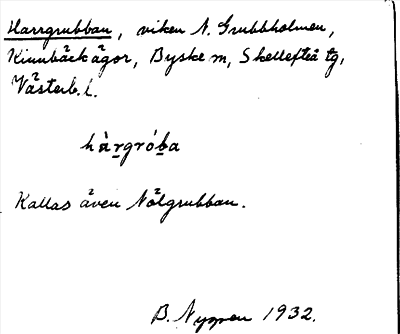 Harrgrubban, viken N. Grubbholmen,
Kinnbäckågor, Byske m, Skellefteå tg,
Västerb. l.
hàrgróba
Kallas även Nölgrubban.
B. Nyman 1932.